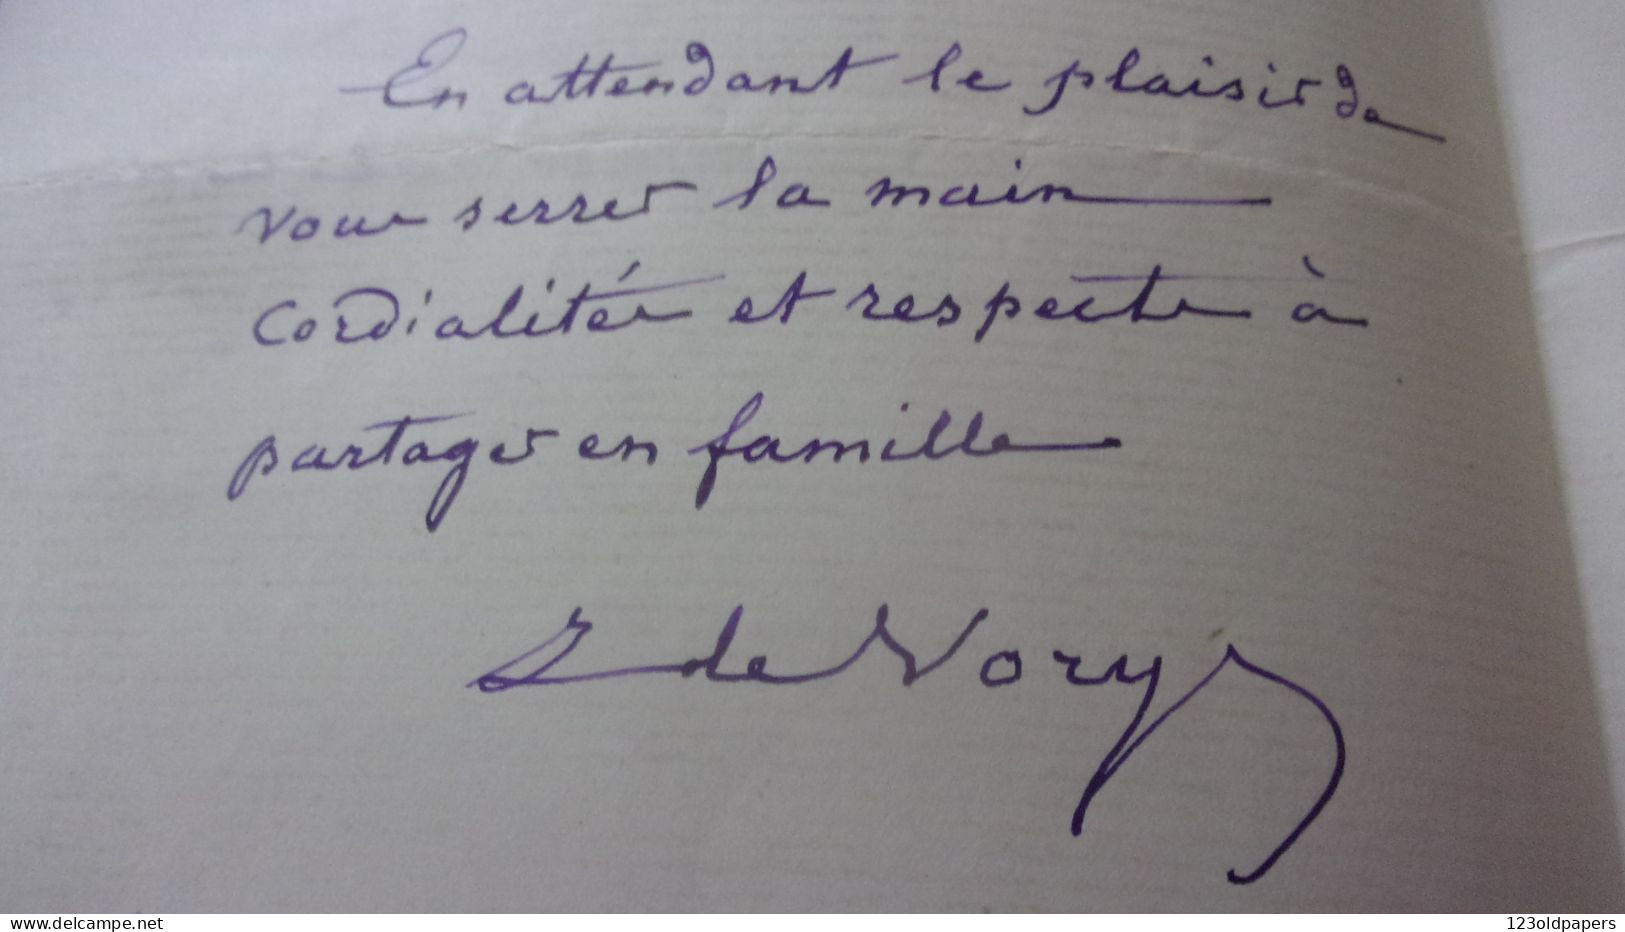 En attendant le plaisir de
vous serrer la main
cordialités et respects à
partager en famille
de Vorys
www.delcampe.net
123oldpapers